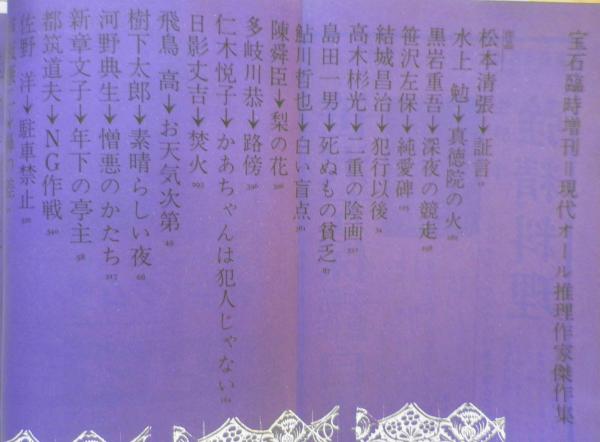 宝石臨時増刊＝現代オール推理作家傑作集
松本清張→証言
水上 勉→真徳院の火
黒岩重吾→深夜の競走
笹沢左保→純愛碑
結城昌治→犯行以後
高木彬光→二重の陰画
島田一男→死ぬもの貧乏
鮎川哲也→白い盲点
陳舜臣→梨の花
多岐川恭→路傍
仁木悦子→かあちゃんは犯人じゃない
日影丈吉→焚火
飛鳥 高→お天気次第
樹下太郎→素晴らしい夜
河野典生→憎悪のかたち
新章文子→年下の亭主
都筑道夫→NG作戦
佐野 洋→駐車禁止